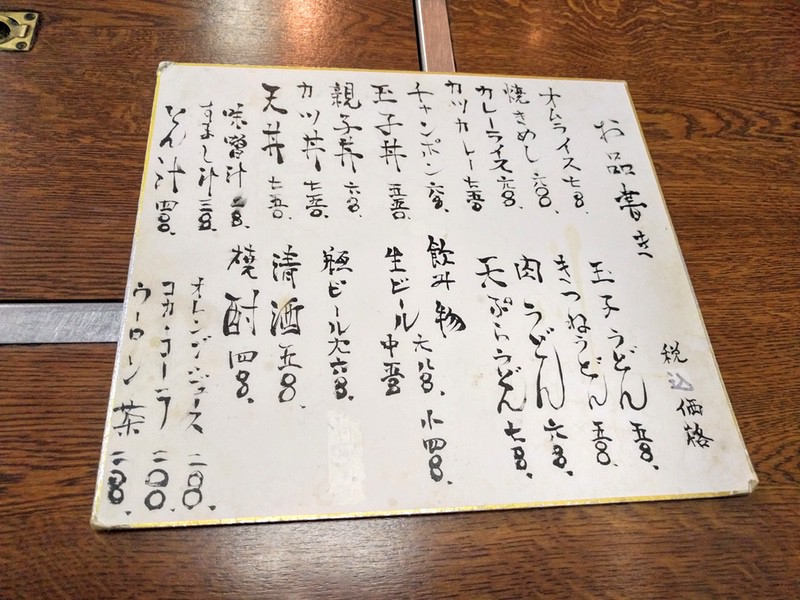 お品書き
税込価格
オムライス 七〇〇
焼きめし 六〇〇
カレーライス 六〇〇
カツカレー 七五〇
チャンポン 六〇〇
玉子丼 五五〇
親子丼 六〇〇
カツ丼 七五〇
天丼 七五〇
味噌汁
すまし汁
とん汁 四〇〇
玉子うどん 五〇〇
きつねうどん 五〇〇
肉うどん 六〇〇
天ぷらうどん 七〇〇
飲み物
生ビール 大八〇〇 中五五〇 小四〇〇
瓶ビール 大六〇〇
清酒 五〇〇
焼酎 四〇〇
オレンジジュース 二〇〇
コカ・コーラ 二〇〇
ウーロン茶 二〇〇